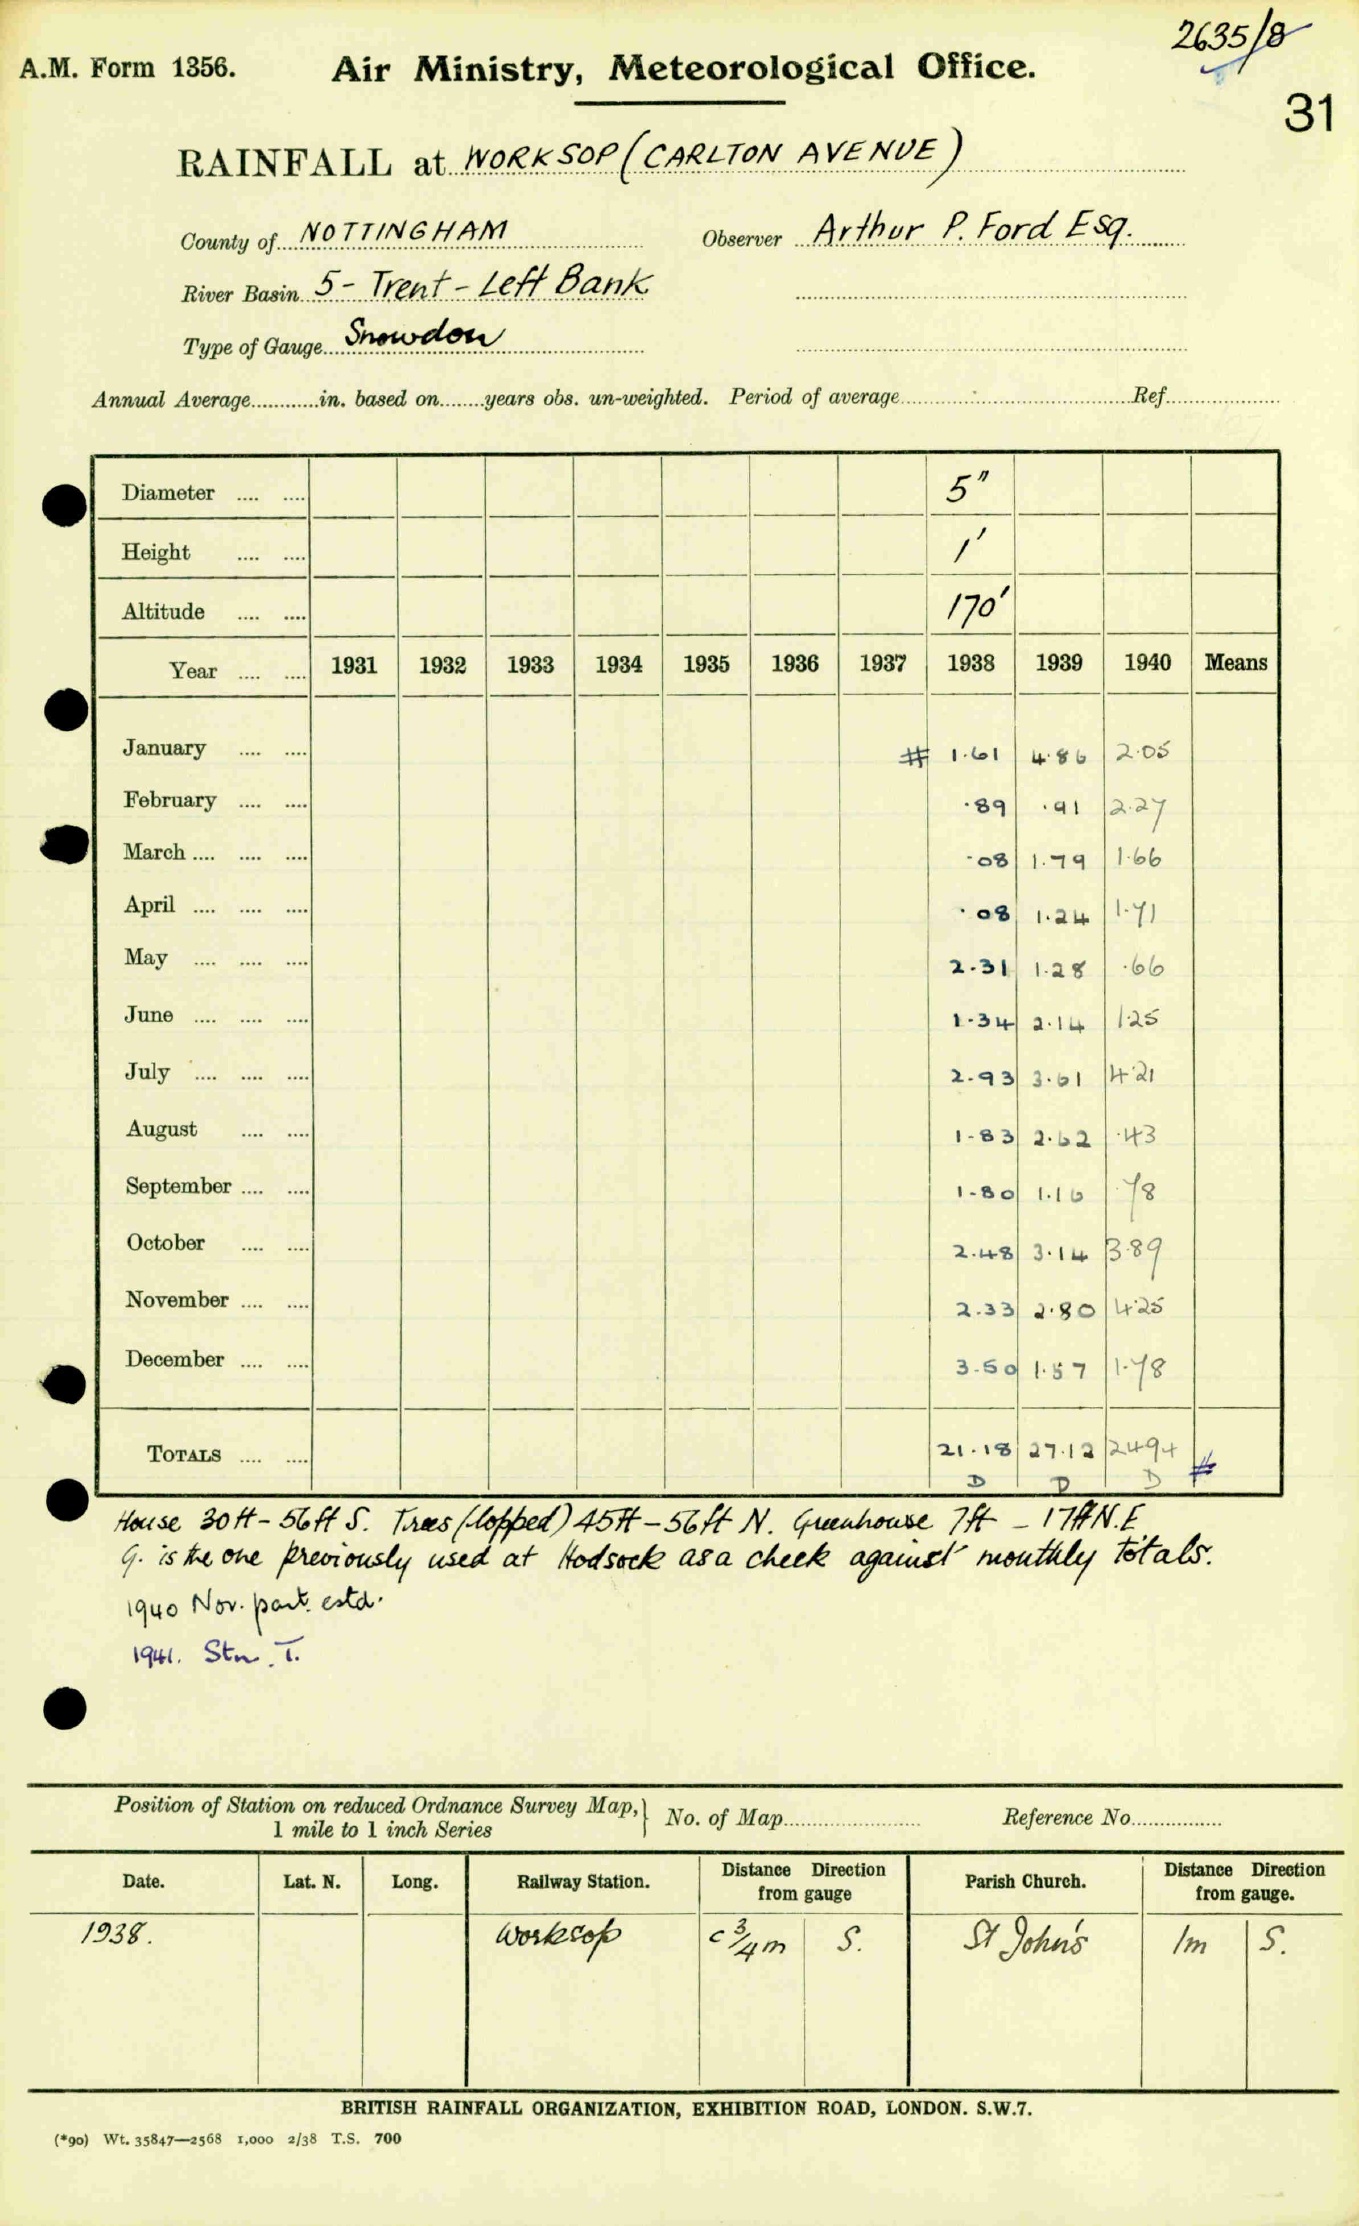 2635/8
A.M. Form 1356. Air Ministry, Meteorological Office.
31
RAINFALL at WORKSOP (CARLTON AVENUE)
County of NOTTINGHAM Observer Arthur P. Ford Esq.
River Basin 5 - Trent - Left Bank
Type of Gauge Snowdon
Annual Average............in. based on........years obs. un-weighted. Period of average.......... Ref..........
Diameter .... .... 5"
Height .... .... 1'
Altitude .... .... 170'
Year .... .... 1931 1932 1933 1934 1935 1936 1937 1938 1939 1940 Means
January .... .... # 1.61 4.86 2.05
February .... .... .89 .91 2.27
March .... .... .... .08 1.79 1.66
April .... .... .... .08 1.24 1.71
May .... .... .... 2.31 1.28 .66
June .... .... .... 1.34 2.14 1.25
July .... .... .... 2.93 3.61 4.21
August .... .... 1.83 2.62 .43
September .... .... 1.80 1.16 .78
October .... .... 2.48 3.14 3.89
November .... .... 2.33 2.80 4.25
December .... .... 3.50 1.57 1.78
TOTALS .... .... 21.18 27.12 2494 #
D D D
House 30ft - 56ft S. Trees (lopped) 45ft - 56ft N. Greenhouse 7ft - 17ft N.E
G. is the one previously used at Hodsock as a check against monthly totals.
1940 Nov. part. estd.
1941. Stn. T.
Position of Station on reduced Ordnance Survey Map, } No. of Map.......... Reference No..........
1 mile to 1 inch Series
Date. Lat. N. Long. Railway Station. Distance Direction from gauge Parish Church. Distance Direction from gauge.
1938. Worksop c 3/4 m S. St John's 1m S.
BRITISH RAINFALL ORGANIZATION, EXHIBITION ROAD, LONDON. S.W.7.
(*90) Wt. 35847—2568 1,000 2/38 T.S. 700